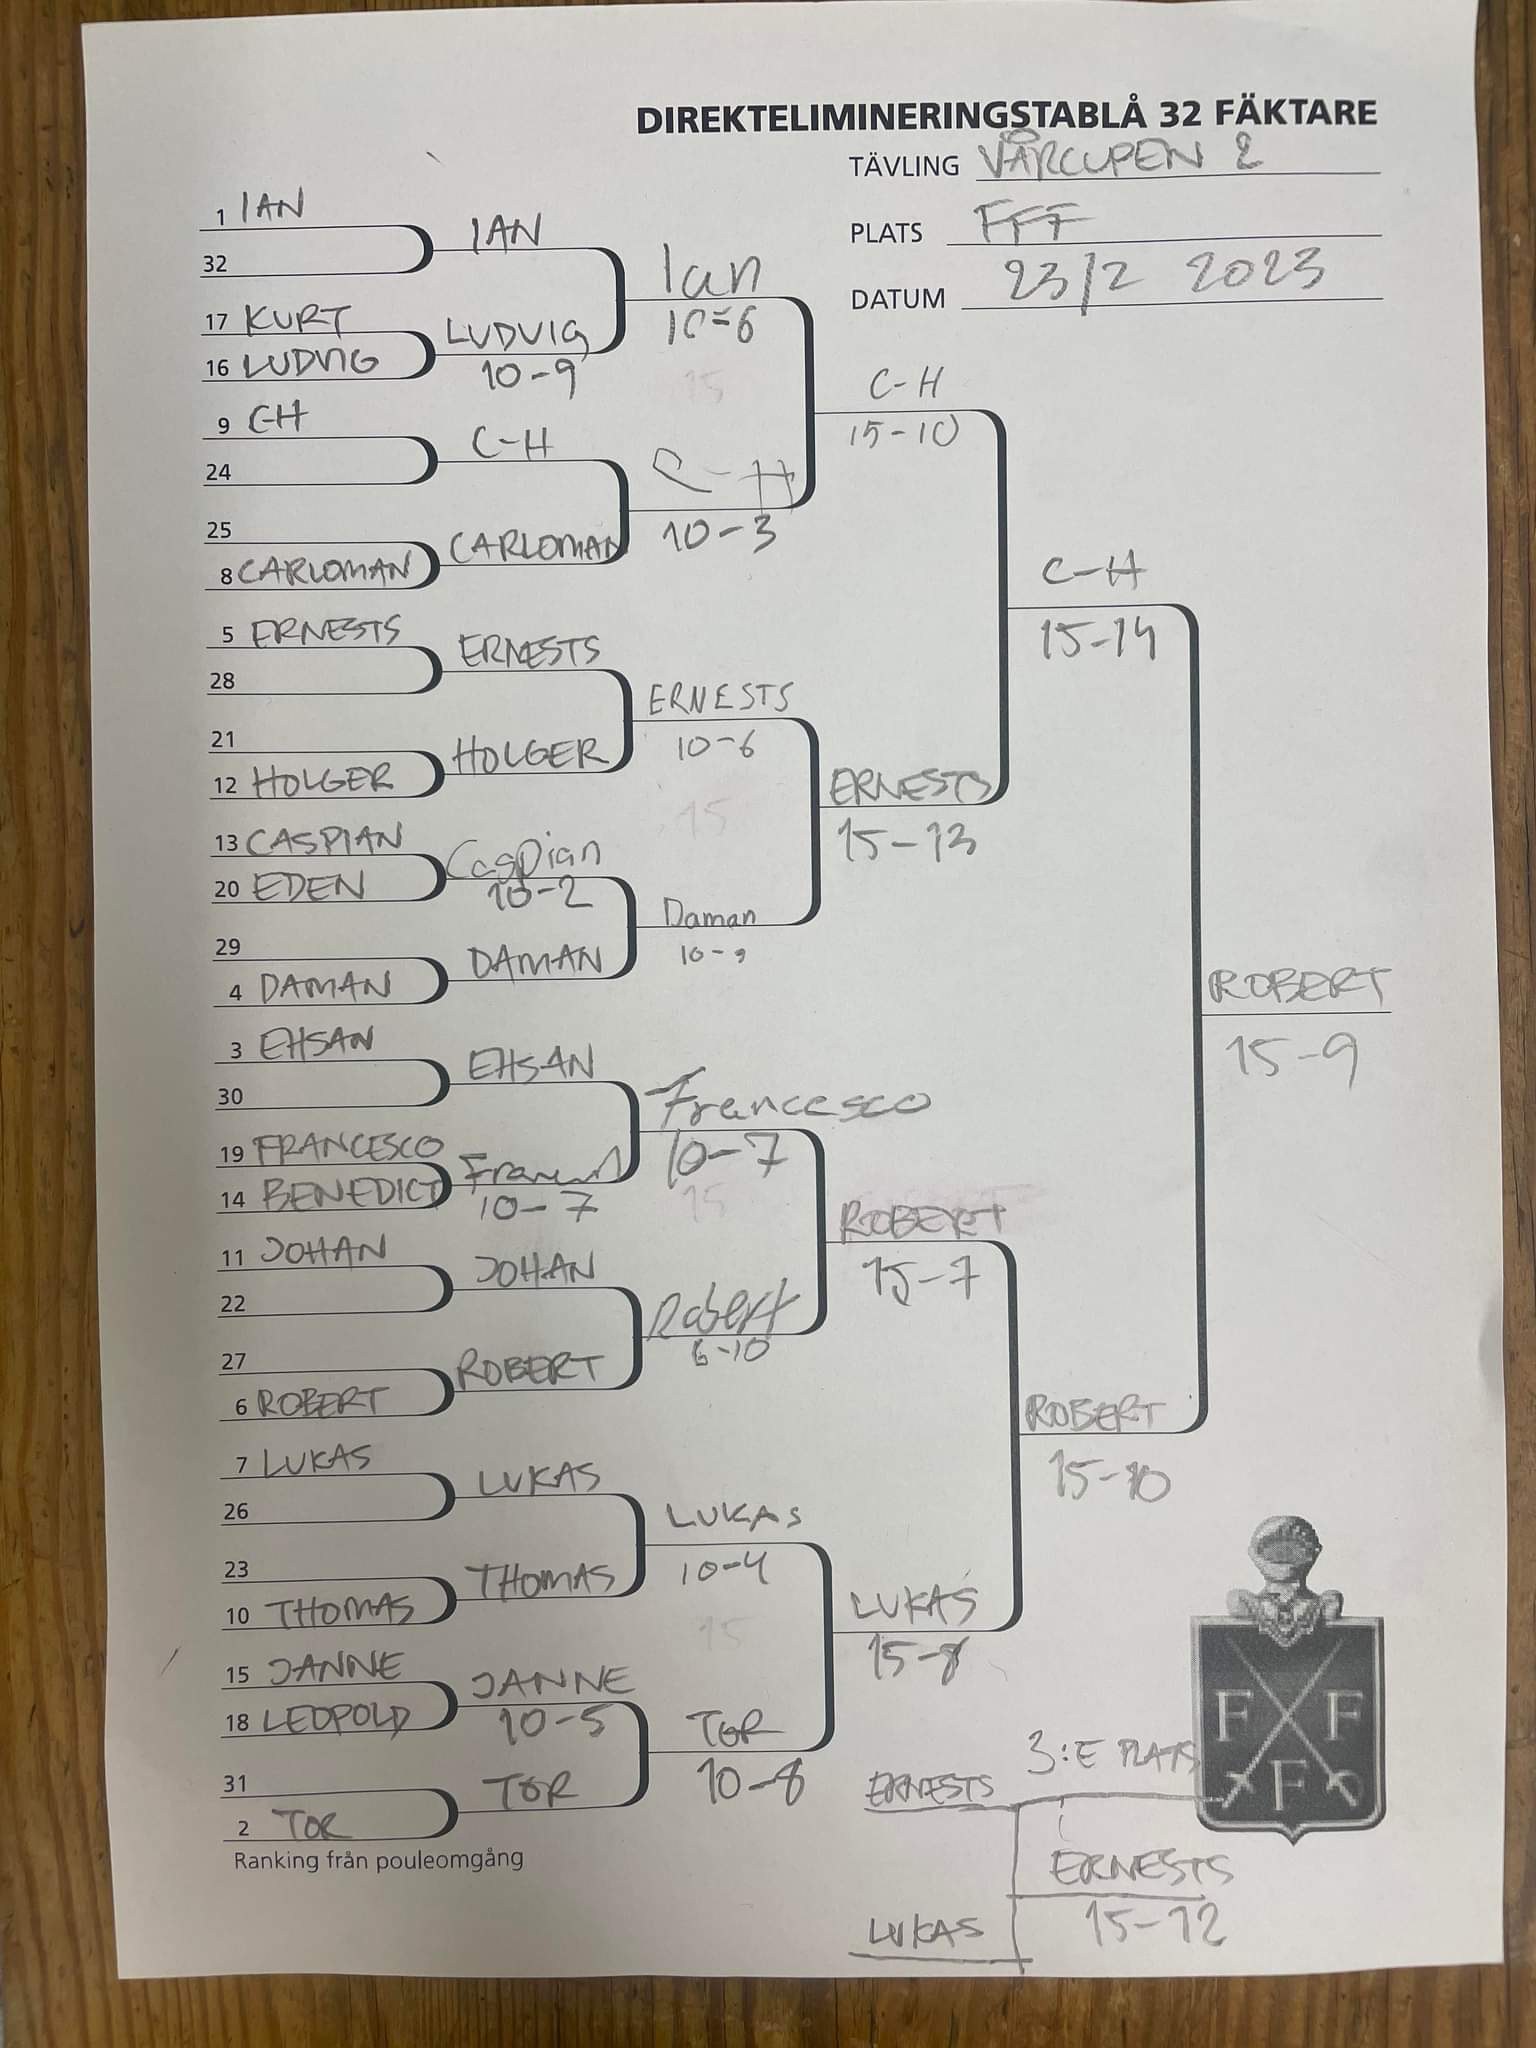 DIREKTELIMINERINGSTABLÅ 32 FÄKTARE
TÄVLING VÅRCUPEN 2
PLATS FFF
DATUM 23/2 2023
1 IAN
32
17 KURT
16 LUDVIG
9 C-H
24
25
8 CARLOMAN
5 ERNESTS
28
21
12 HOLGER
13 CASPIAN
20 EDEN
29
4 DAMAN
3 EHSAN
30
19 FRANCESCO
14 BENEDICT
11 JOHAN
22
27
6 ROBERT
7 LUKAS
26
23
10 THOMAS
15 JANNE
18 LEOPOLD
31
2 TOR
Ranking från pouleomgång
IAN
LUDVIG
10-9
C-H
CARLOMAN
ERNESTS
HOLGER
Caspian
10-2
DAMAN
EHSAN
10-7
JOHAN
ROBERT
LUKAS
THOMAS
JANNE
10-5
TOR
Ian
10-6
15
C-H
10-3
ERNESTS
10-6
15
Daman
10-9
Francesco
10-7
15
Robert
6-10
LUKAS
10-4
15
TOR
10-8
C-H
15-10
ERNESTS
15-13
ROBERT
15-7
LUKAS
15-8
C-H
15-14
ROBERT
15-10
ROBERT
15-9
3:E PLATS
ERNESTS
LUKAS
ERNESTS
15-12
F F
F